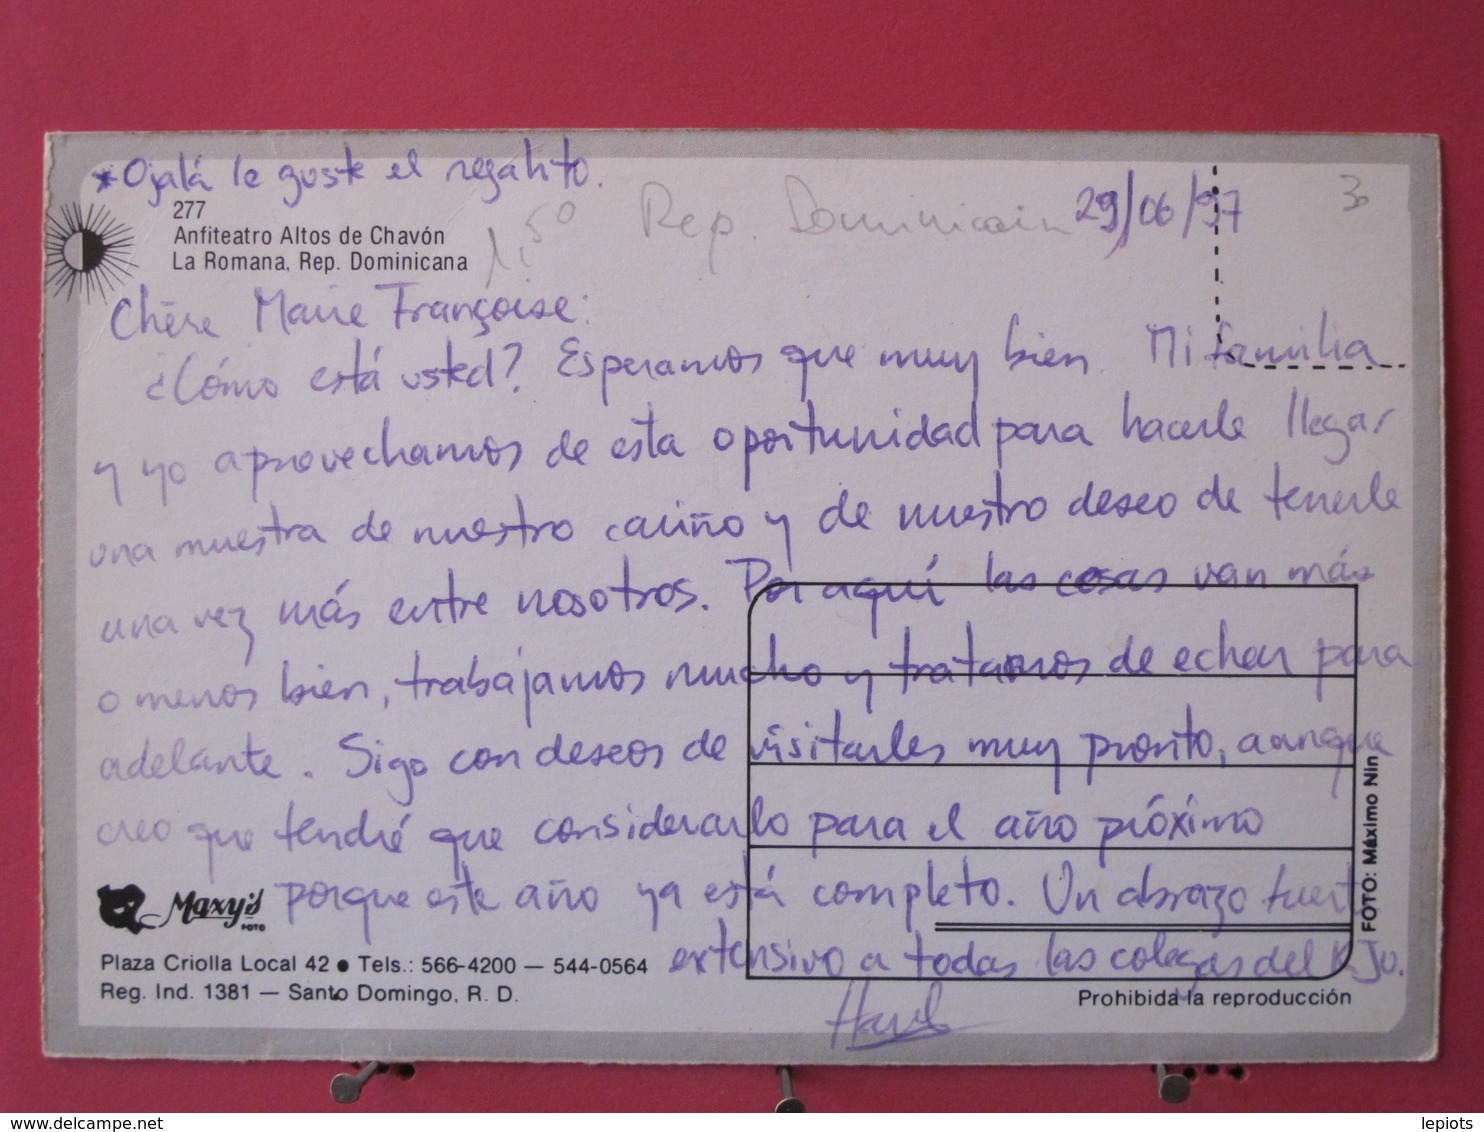 *Ojalá le guste el regalito.
277
Anfiteatro Altos de Chavón
La Romana, Rep. Dominicana
1,50 Rep. Dominicain
29/06/97
3
Chère Marie Françoise:
¿Cómo está usted? Esperamos que muy bien. Mi familia
y yo aprovechamos de esta oportunidad para hacerle llegar
una muestra de nuestro cariño y de nuestro deseo de tenerle
una vez más entre nosotros. Por aquí las cosas van más
o menos bien, trabajamos mucho y tratamos de echar para
adelante. Sigo con deseos de visitarles muy pronto, aunque
creo que tendré que considerarlo para el año próximo
porque este año ya está completo. Un abrazo fuerte
extensivo a todas las colegas del
Maxy's
FOTO
Plaza Criolla Local 42 ● Tels.: 566-4200 — 544-0564
Reg. Ind. 1381 — Santo Domingo, R. D.
FOTO: Máximo Nin
Prohibida la reproducción
delcampe.net
lepiots